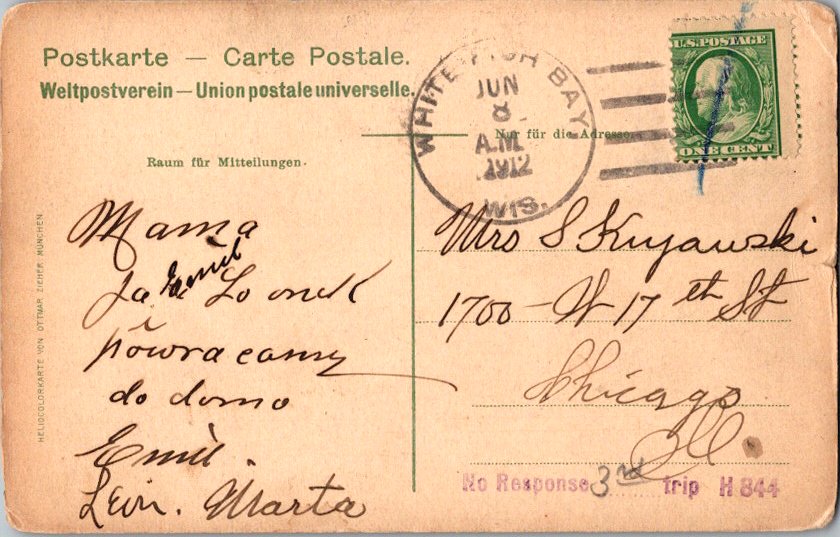 Postkarte — Carte Postale.
Weltpostverein — Union postale universelle.
WHITEFISH BAY,
JUN
8
A.M.
1912
WIS.
U.S. POSTAGE
ONE CENT
Nur für die Adresse.
Raum für Mitteilungen.
HELIOCOLORKARTE VON OTTMAR ZIEHER, MÜNCHEN
Mama
Emil
Ja
powracamy
do domo
Emil.
Leon. Marta
Mrs S Kujawski
1700 - W 17 eth St
Chicago
Ill.
No Response 3rd trip H 844